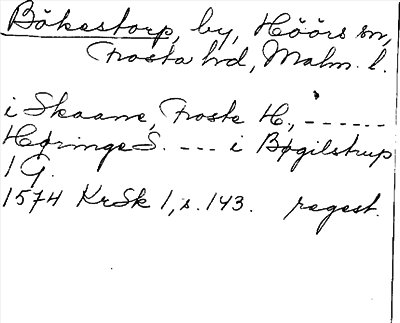 Bökestorp, by, Höörs sn,
Frosta hd, Malm. l.
i Skaane, Froste H., ------
Høringe S. --- i Bøgilstrup
1 G.
1574 KrSk 1, s. 143. regest.